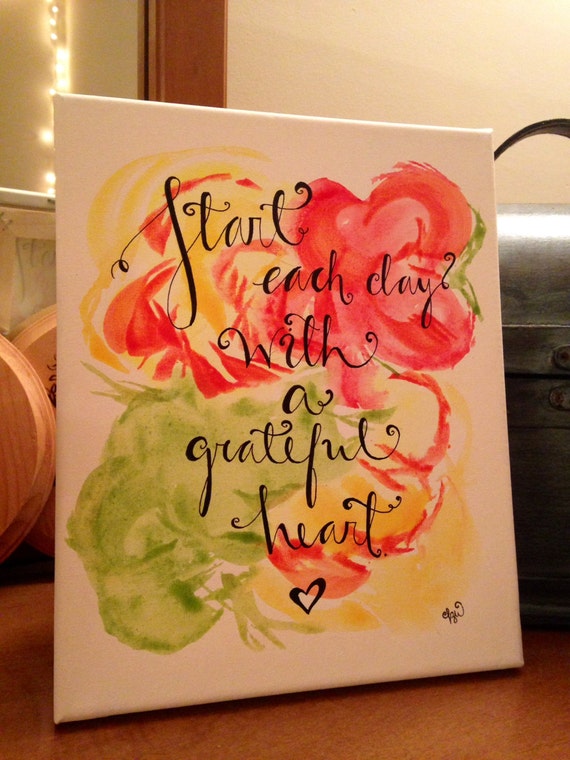 Start
each day
with
a
grateful
heart.